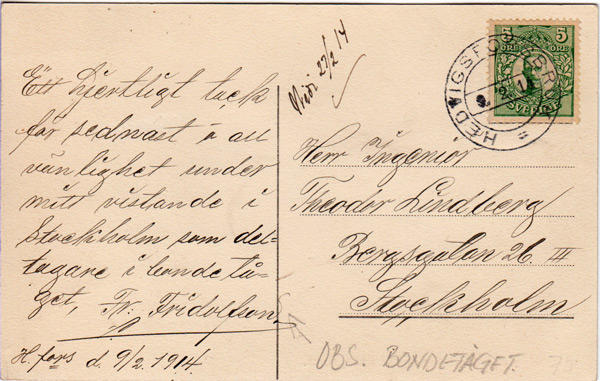 Ett hjertligt tack
för sednast o all
vänlighet under
mitt vistande i
Stockholm som del-
tagare i bondetå-
get, Fr. Fridolfson
H.fors d. 9/2 1914.
23/2 14
5 5
ÖRE ÖRE
SVERIGE
HEDVIGSFORSBRUK
Herr Ingeniör
Theodor Lindberg
Bergsgatan 26 III
Stockholm
OBS. BONDETÅGET.
75